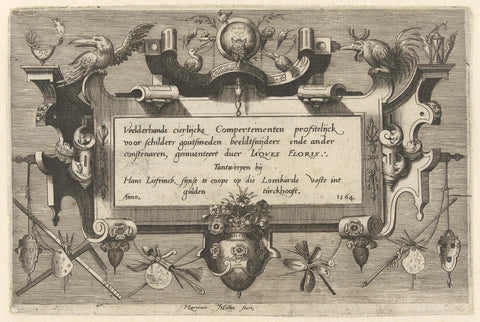 Veelderhande cierlijcke Compertementen profitelijck
voor schilders goutsmeden beeldtsnijders ende ander
constenaren, geinventeert duer IAQVES FLORIS.
Tantwerpen bij
Hans Liefrinck sijnse te coope op die Lombarde veste int
Anno. gulden türckhooft. 1564.
Harmon Muller fecit.